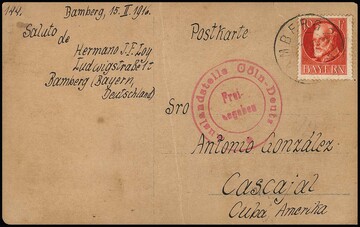 144.
Bamberg, 15. II. 1916.
Saluto
de
Hermano J. F. Loy
Ludwigstraße 15
Bamberg (Bayern,
Deutschland)
Postkarte
MBER
10
BAYERN
Auslandstelle Cöln-Deutz
Frei-
gegeben
Sro
Antonio González
Cascajal
Cuba, Amerika